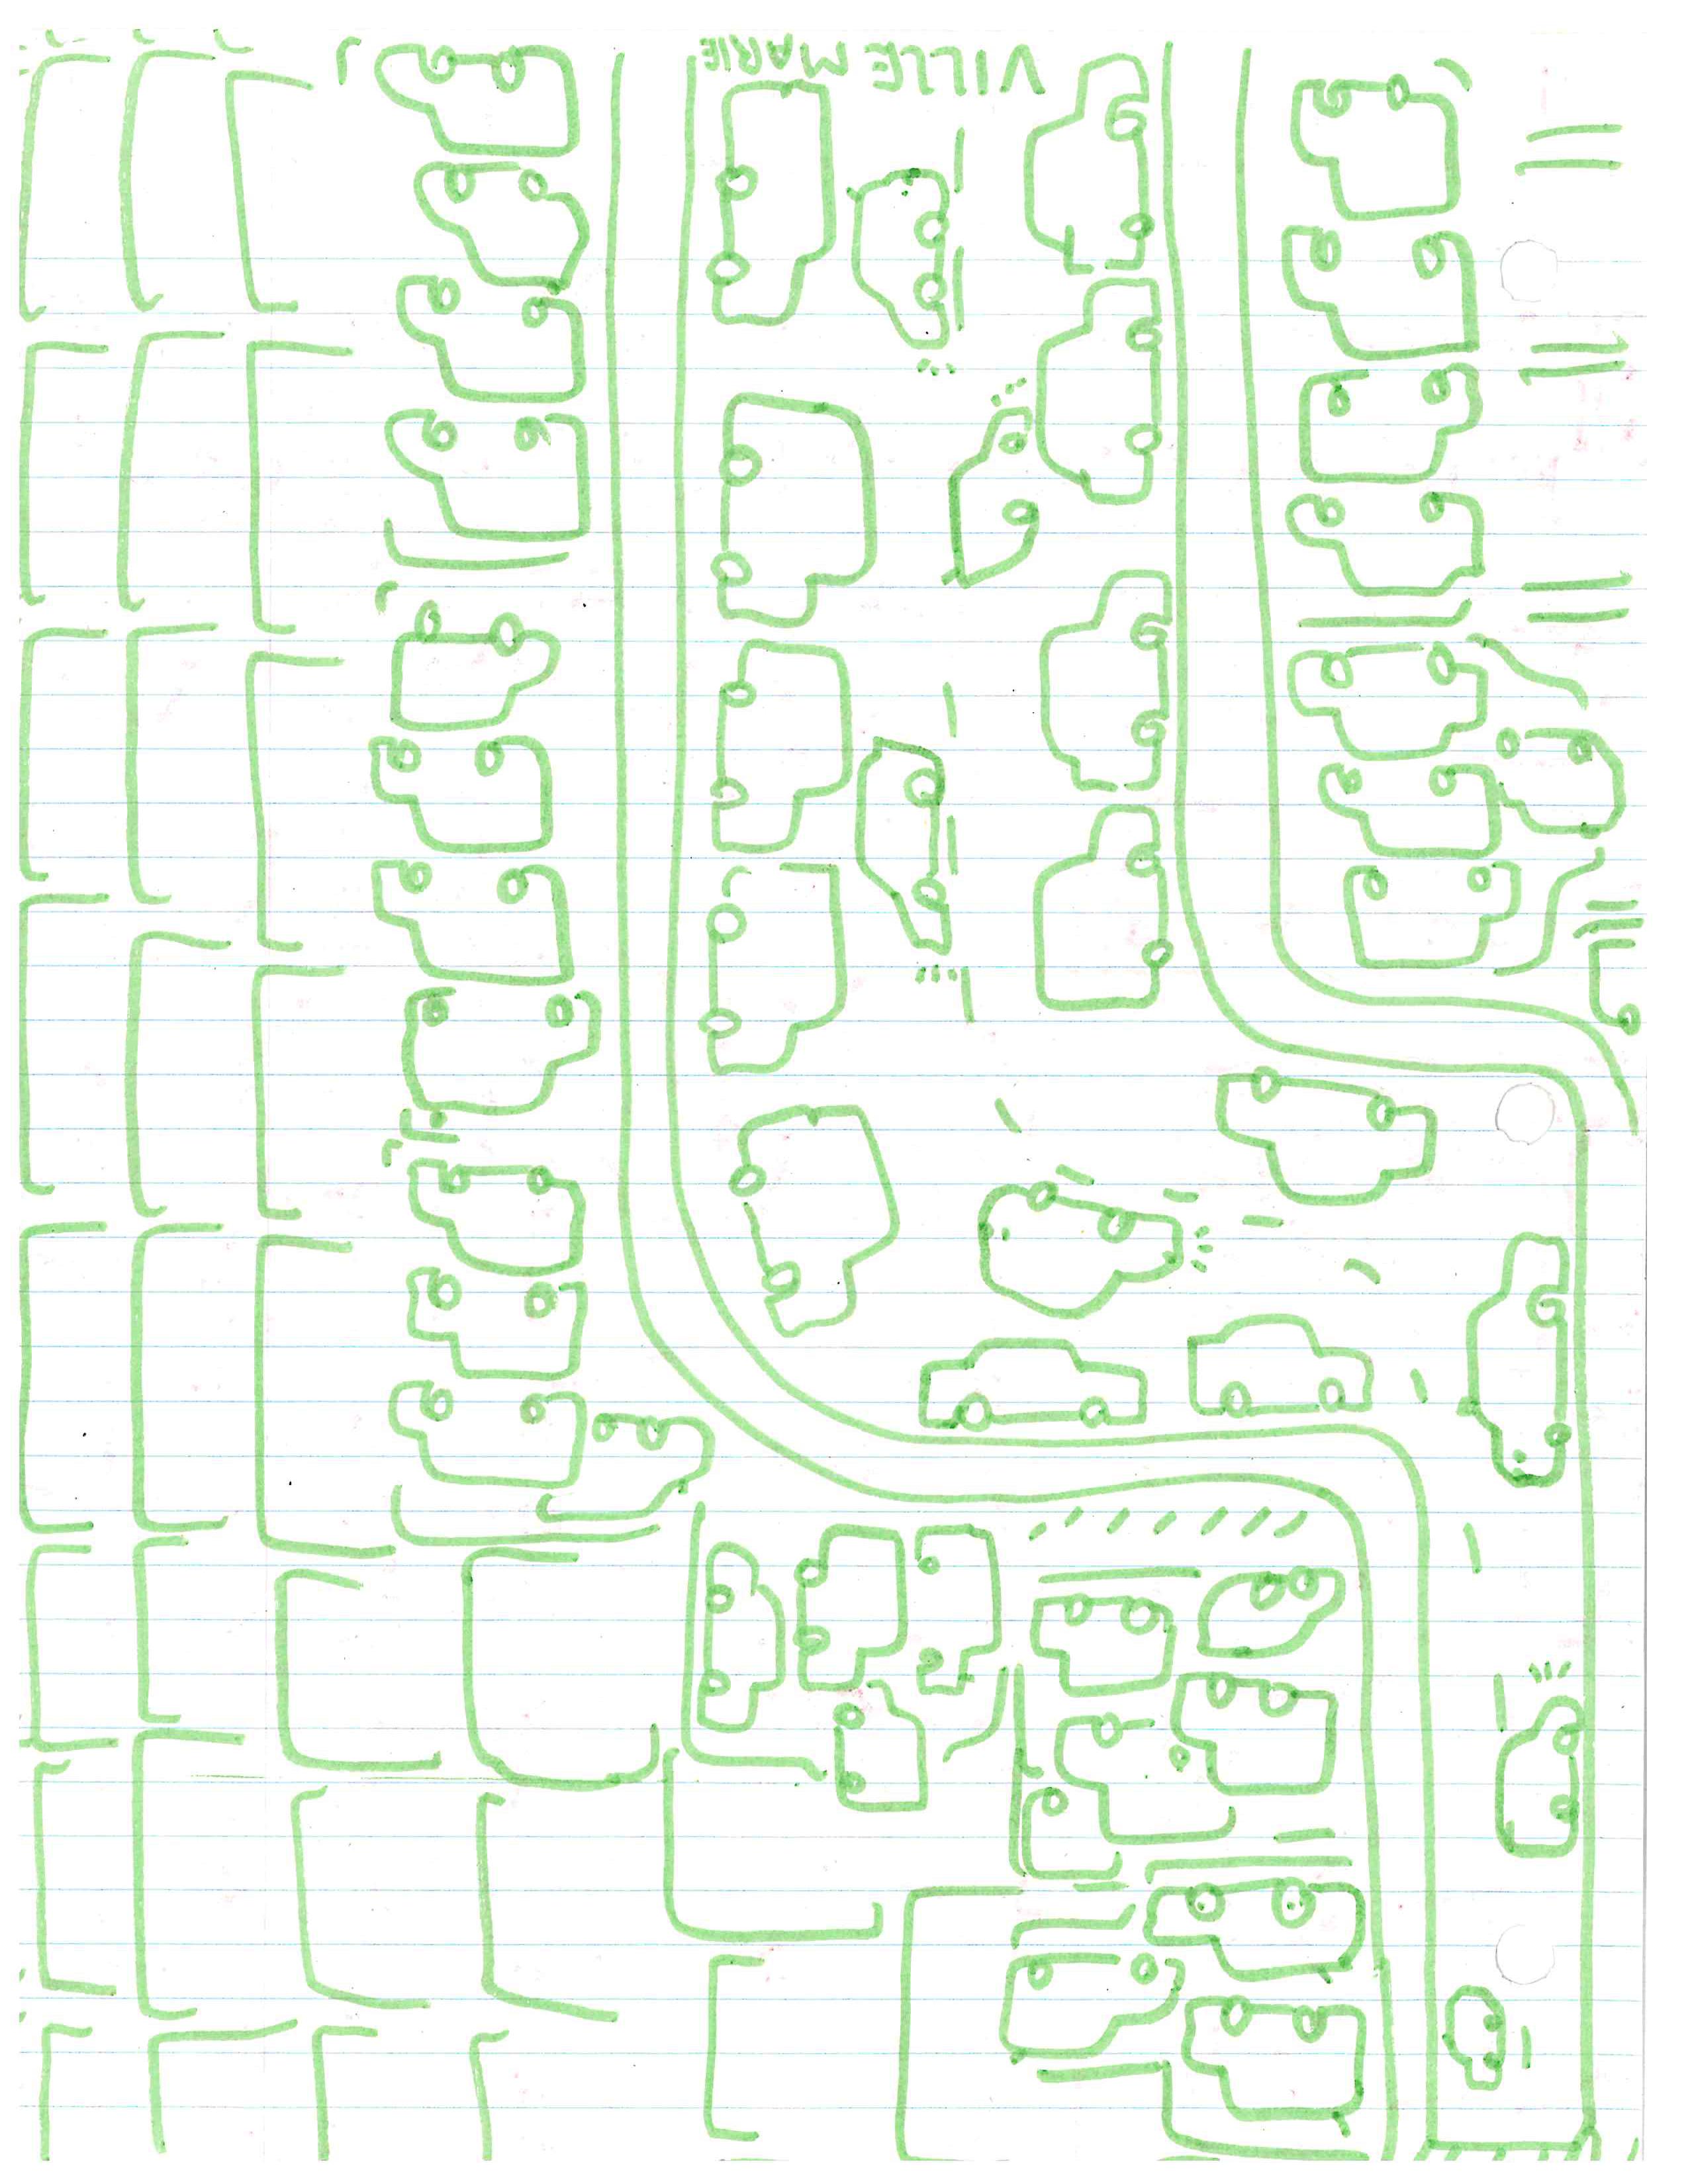 VILLE MARIE